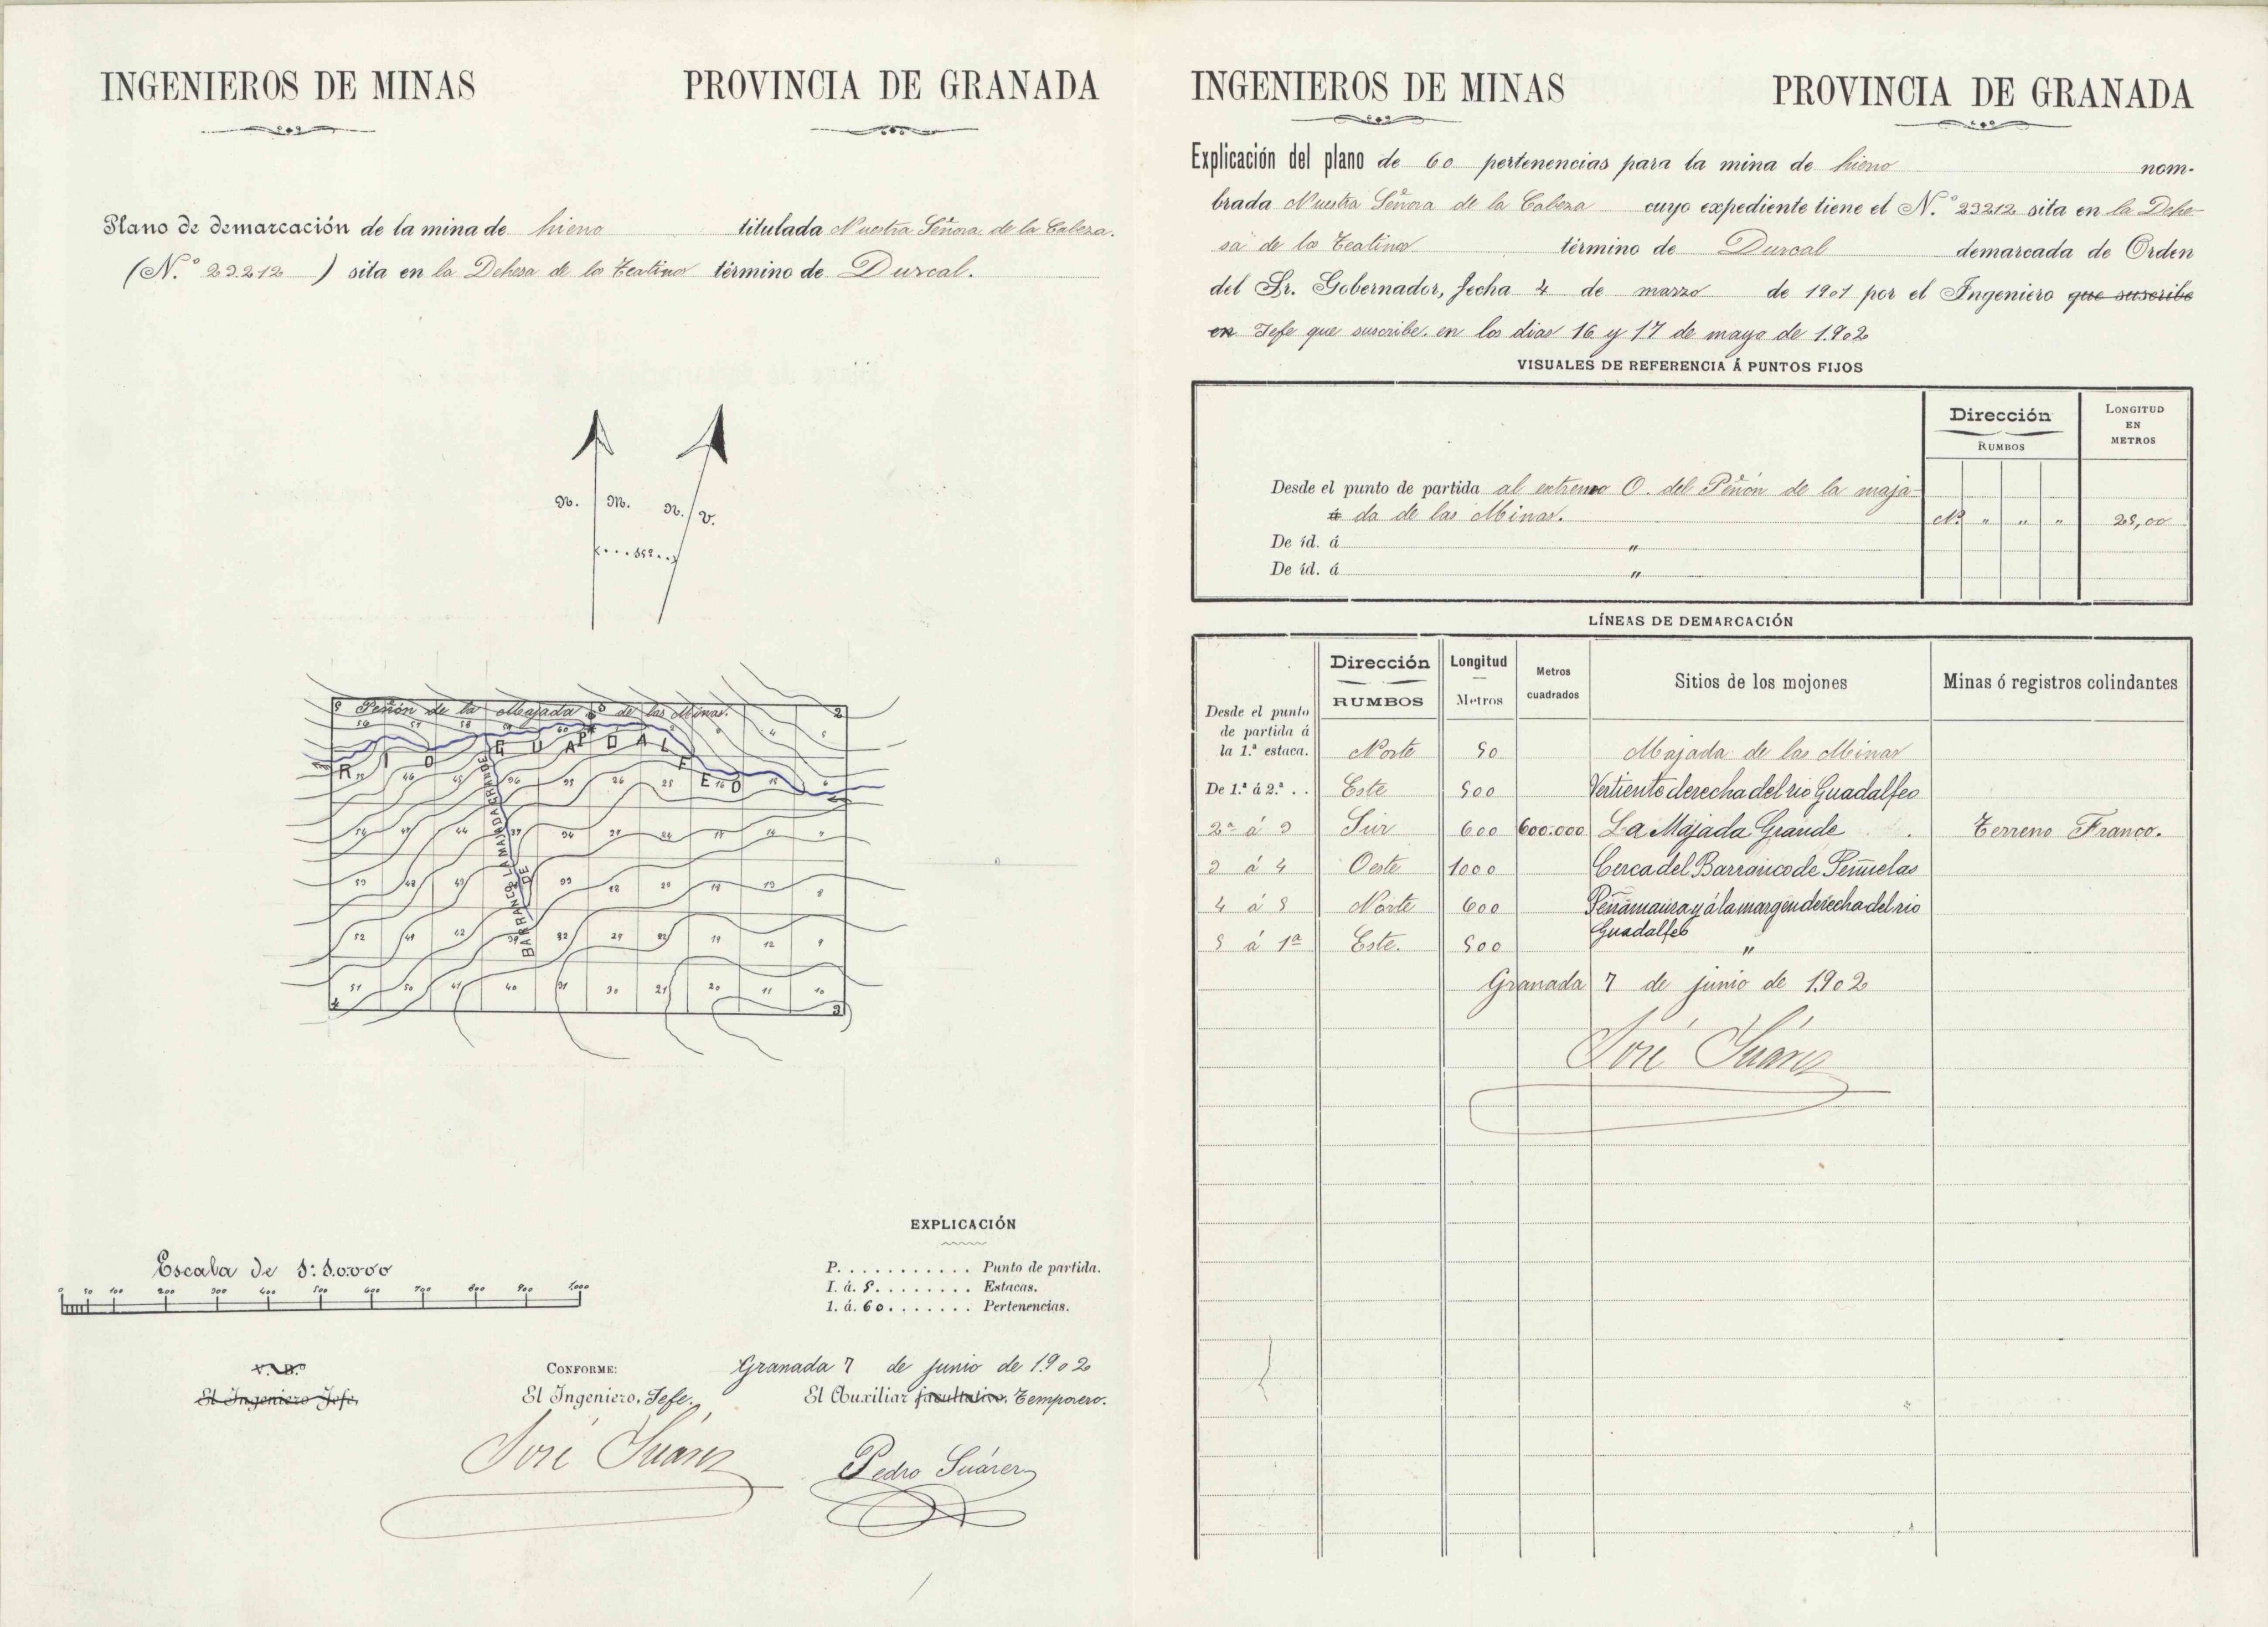 INGENIEROS DE MINAS
PROVINCIA DE GRANADA
Plano de demarcación de la mina de hierro titulada Nuestra Señora de la Cabeza.
(N.º 23212) sita en la Dehesa de los Teatinos término de Durcal.
N. M. N. V.
5 Peñón de la Majada de las Minas. 2
RIO GUADALFEO
BARRANCO DE LA MAJADA GRANDE
51 50 41 40 31 30 21 20 11 10
4 3
EXPLICACIÓN
P. . . . . . . . . . . . Punto de partida.
1. á. 5. . . . . . . . . Estacas.
1. á. 60. . . . . . . Pertenencias.
Escala de 1:5.000
0 50 100 200 300 400 500 600 700 800 900 1000
V.º B.º
El Ingeniero Jefe,
CONFORME:
El Ingeniero, Jefe.
José Suárez
Granada 7 de junio de 1902
El Auxiliar facultativo, Temporero.
Pedro Suárez
INGENIEROS DE MINAS
PROVINCIA DE GRANADA
Explicación del plano de 60 pertenencias para la mina de hierro nom-
brada Nuestra Señora de la Cabeza cuyo expediente tiene el N.º 23212 sita en la Dehe-
sa de los Teatinos término de Durcal demarcada de Orden
del Sr. Gobernador, fecha 4 de marzo de 1901 por el Ingeniero que suscribe
en Jefe que suscribe en los dias 16 y 17 de mayo de 1902
VISUALES DE REFERENCIA Á PUNTOS FIJOS
Dirección
RUMBOS
LONGITUD
EN
METROS
Desde el punto de partida al extremo O. del Peñón de la maja-
da de las Minas. N. " " " 25,00
De id. á "
De id. á "
LÍNEAS DE DEMARCACIÓN
Dirección
RUMBOS
Longitud
Metros
Metros
cuadrados
Sitios de los mojones
Minas ó registros colindantes
Desde el punto
de partida á
la 1.ª estaca. Norte 50 Majada de las Minas
De 1.ª á 2.ª . . Este 500 Vertiente derecha del rio Guadalfeo
2ª á 3 Sur 600 600.000 La Majada Grande Terreno Franco.
3 á 4 Oeste 1000 Cerca del Barranco de Peñuelas
4 á 5 Norte 600 y á la margen derecha del rio
Guadalfeo
5 á 1ª Este. 500 "
Granada 7 de junio de 1902
José Suárez